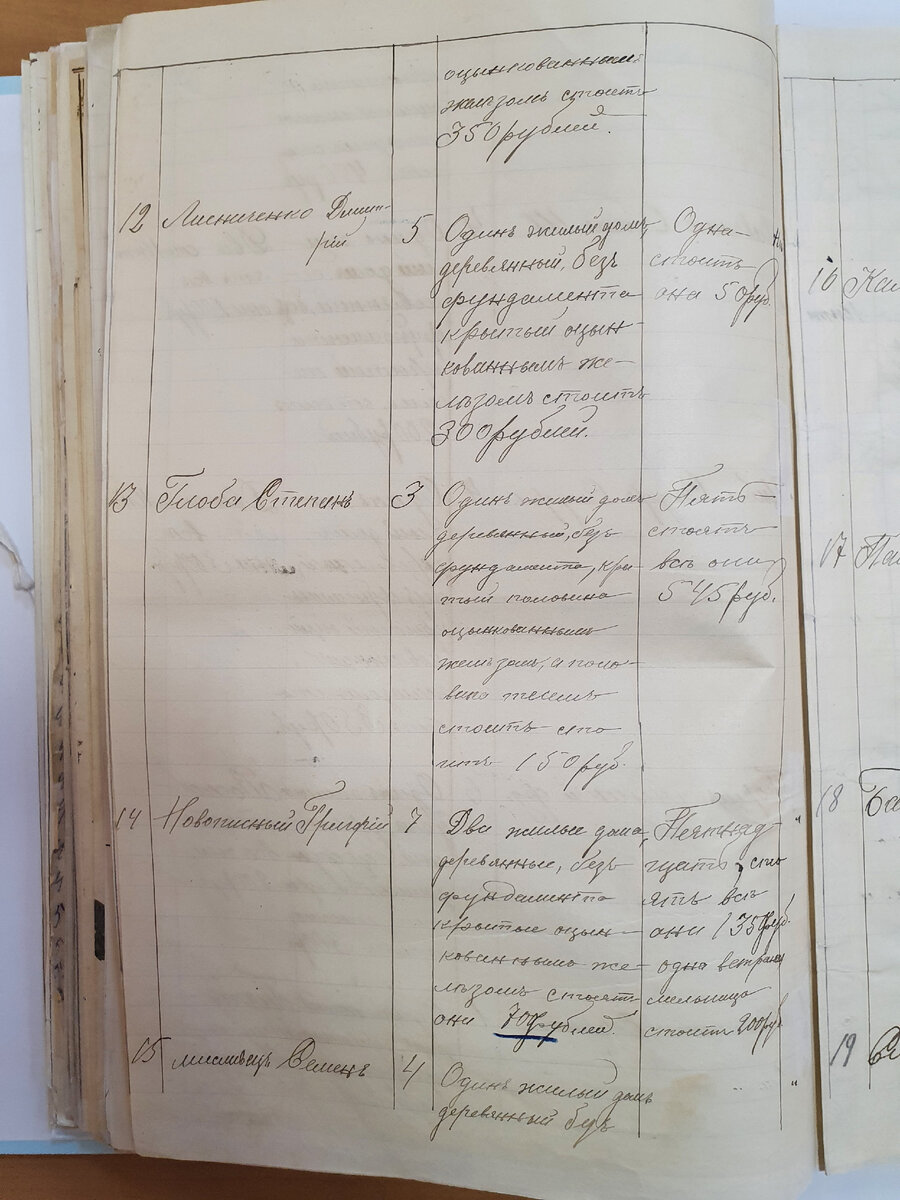 оцынкованнымъ
желѣзомъ стоитъ
350 рублей.
12 Лисниченко Дмит-
рій 5
Одинъ жилый домъ
деревянный, безъ
фундамента
крытый оцын-
кованнымъ же-
лѣзомъ стоитъ
300 рублей.
Одна
стоитъ
она 50 руб.
13 Глоба Степанъ 3
Одинъ жилый домъ
деревянный, безъ
фундамента, кры-
тый половина
оцынкованнымъ
желѣзомъ, а поло-
вина тесомъ
стоитъ сто
итъ 150 руб.
Пять
стоятъ
всѣ они
545 руб.
14 Новописный Григорій 7
Два жилые дома,
деревянные, безъ
фундамента
крытые оцын-
кованнымъ же-
лѣзомъ стоятъ
они 700 рублей.
Пятнад-
цать, сто
ятъ всѣ
они 1350 руб.
одна ветряная
мельница
стоитъ 200 руб
15 Мисливецъ Семенъ 4
Одинъ жилый домъ
деревянный безъ
16 Ка
17 Па
18 Ба
19